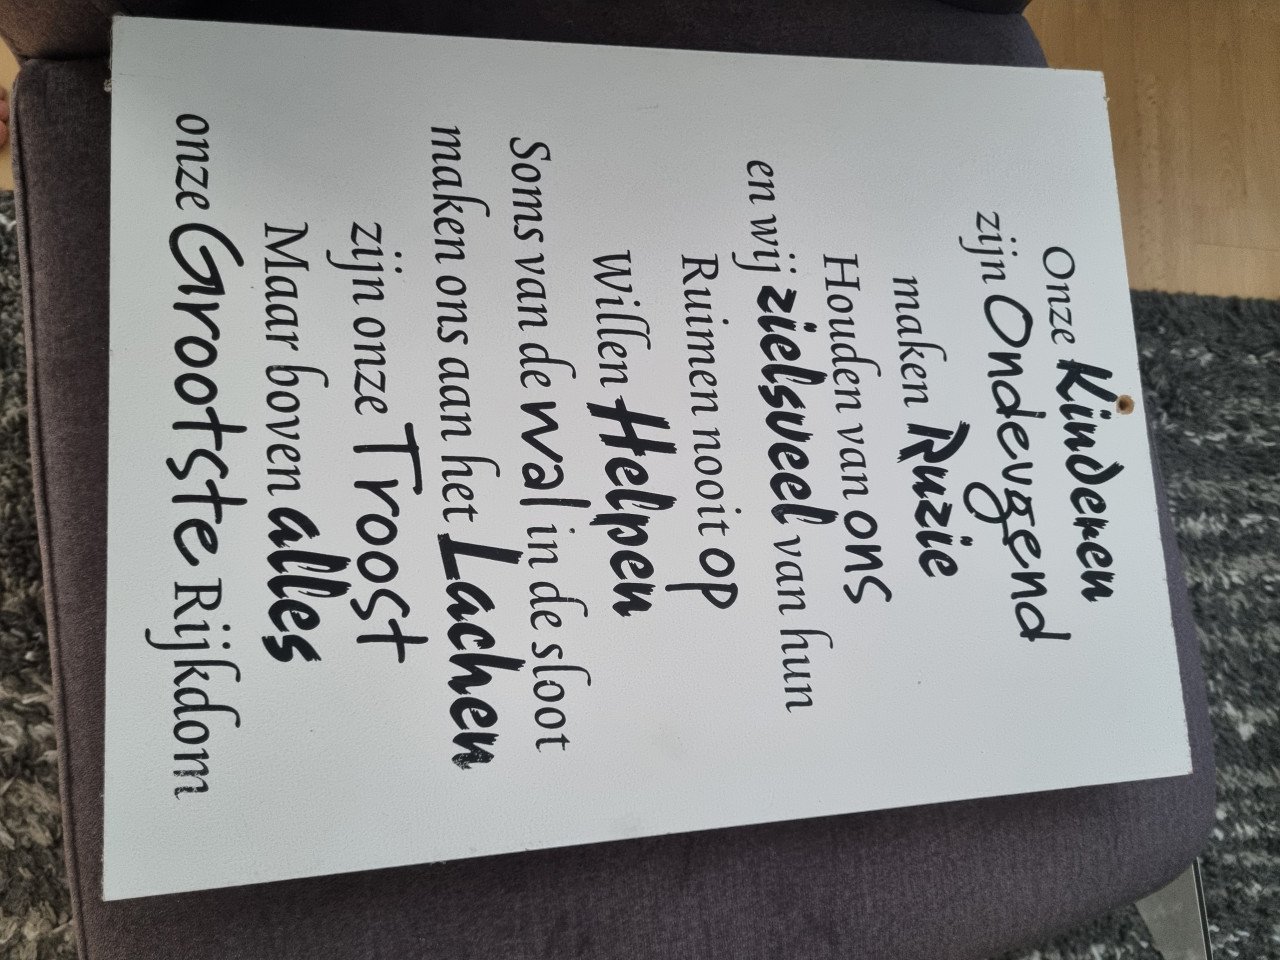 Onze Kinderen
zijn Ondevgend
maken Ruzie
Houden van ons
en wij zielsveel van hun
Ruimen nooit op
Willen Helpen
Soms van de wal in de sloot
maken ons aan het Lachen
zijn onze Troost
Maar boven alles
onze Grootste Rijkdom